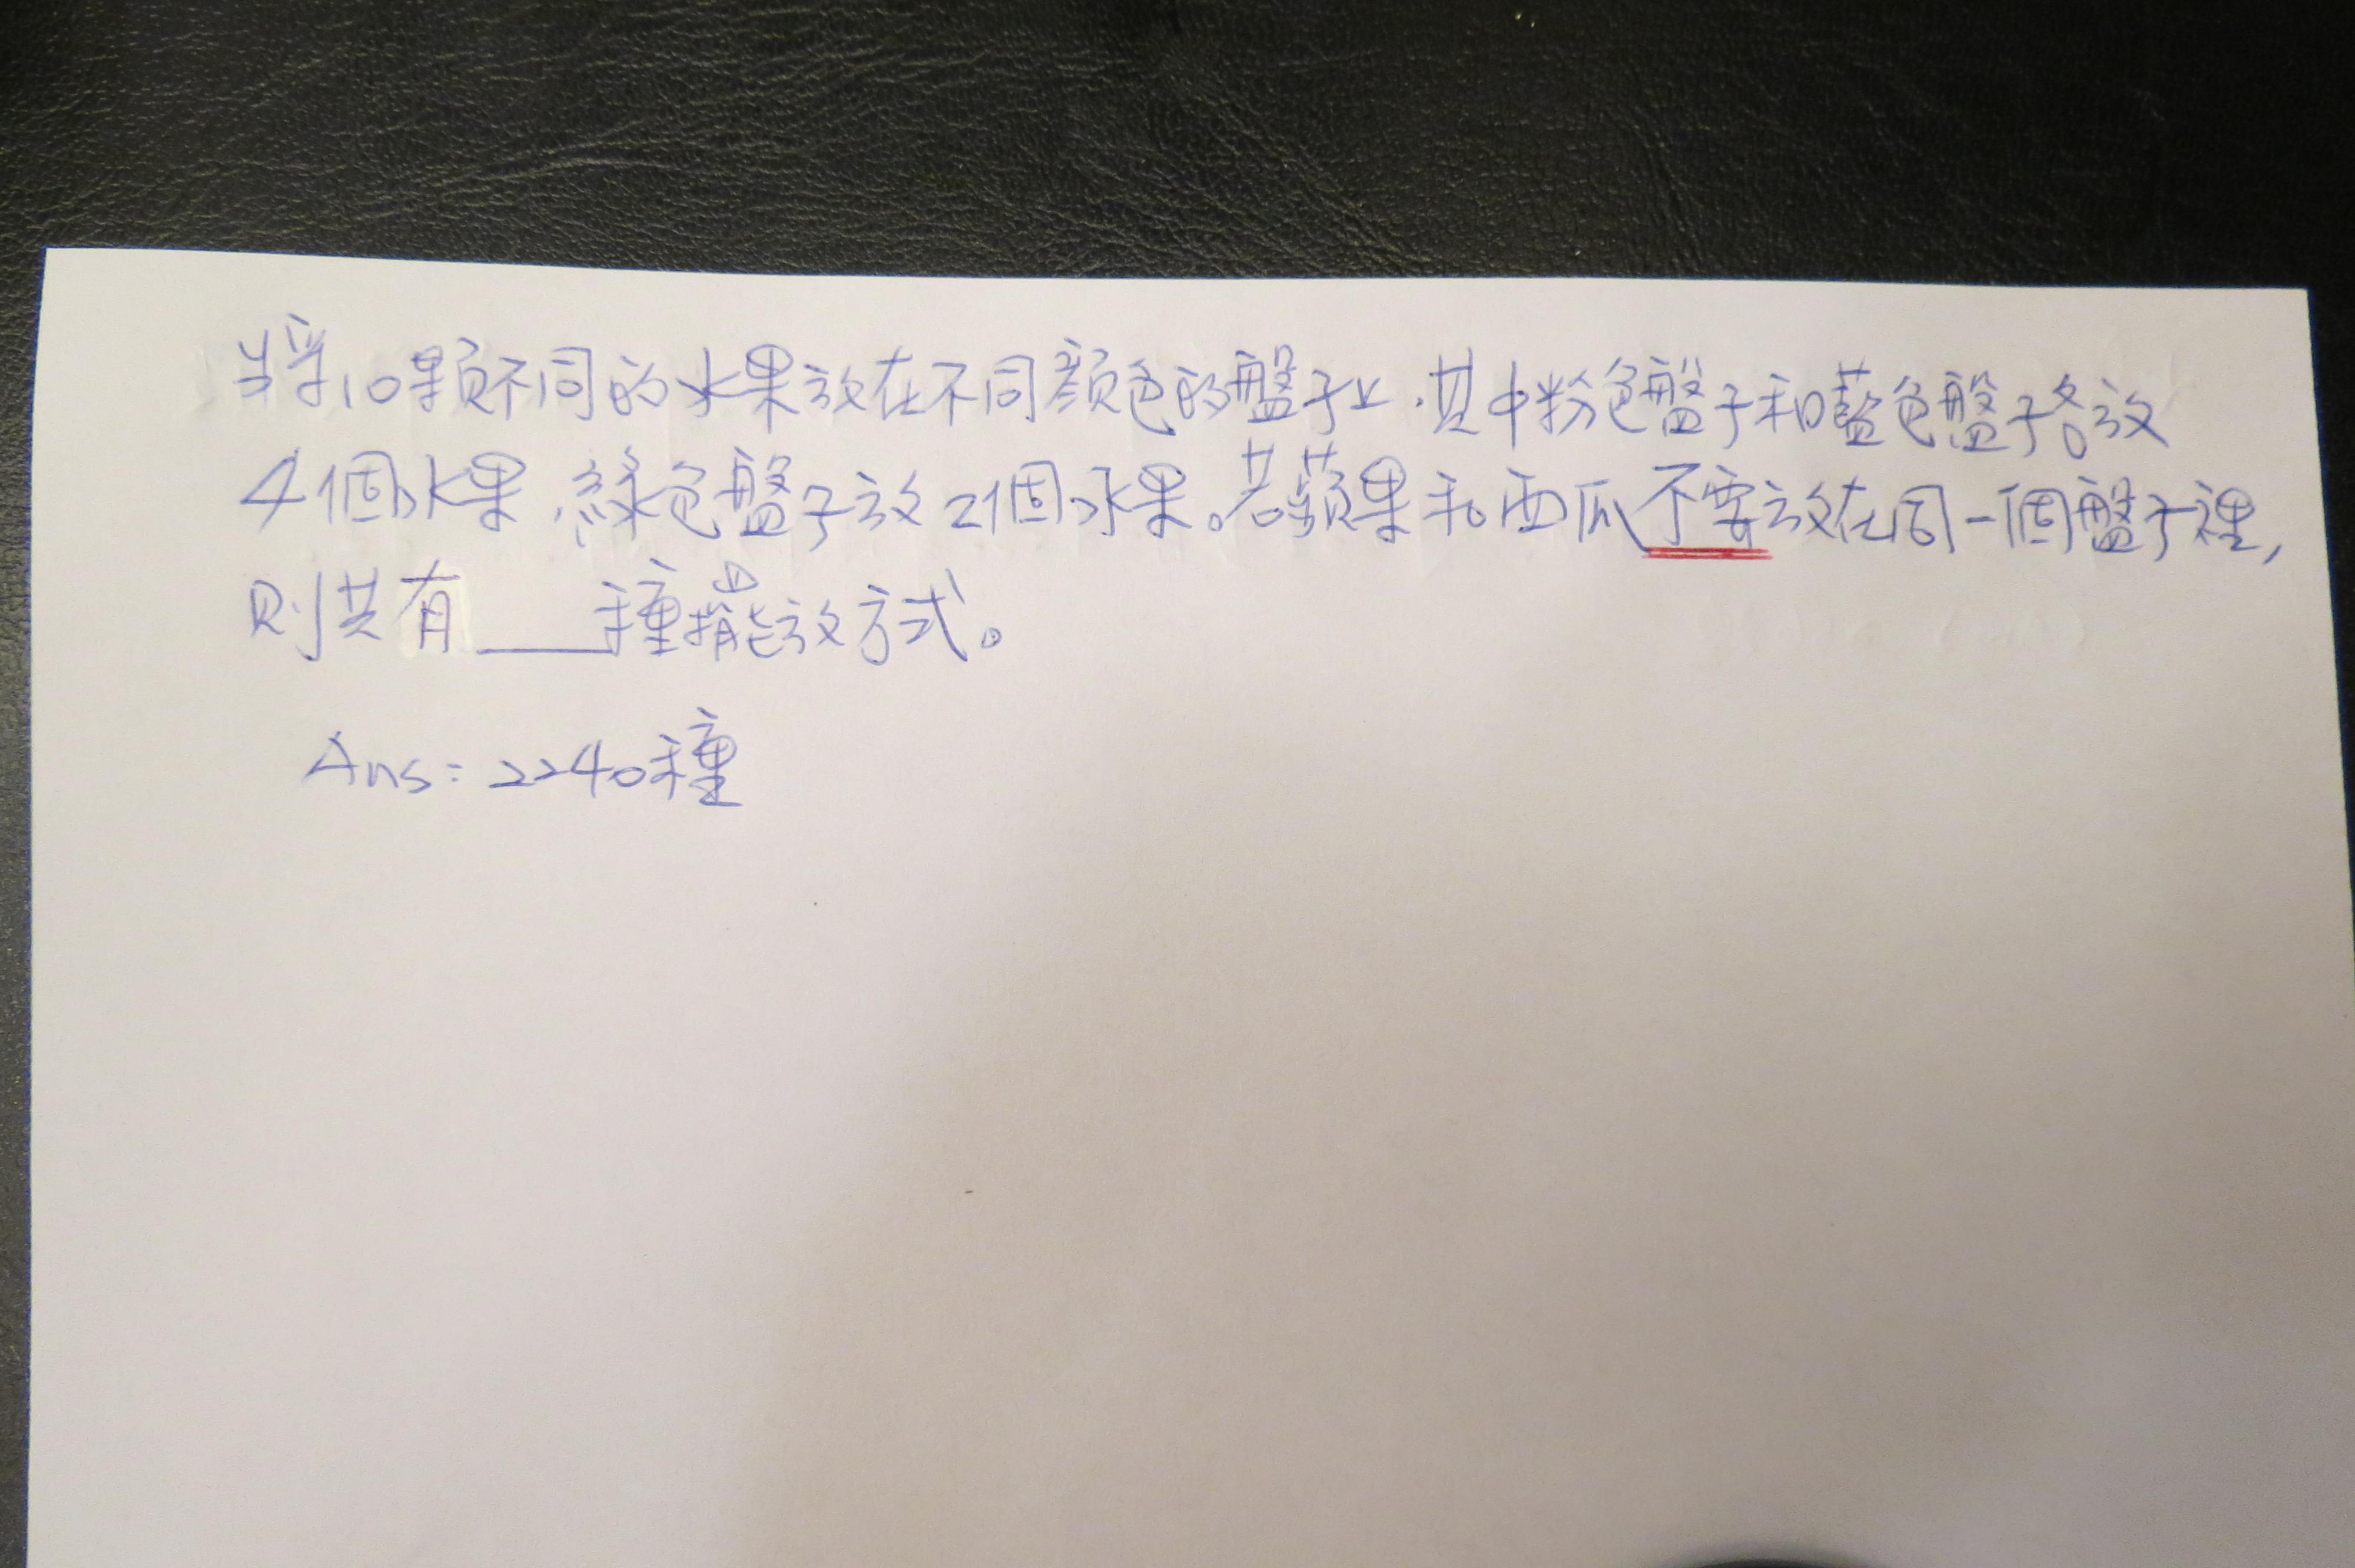 將10顆不同的水果放在不同顏色的盤子上.其中粉色盤子和藍色盤子各放
4個水果.綠色盤子放2個水果。若蘋果和西瓜不要放在同一個盤子裡,
則共有____種擺放方式。
Ans:2240種